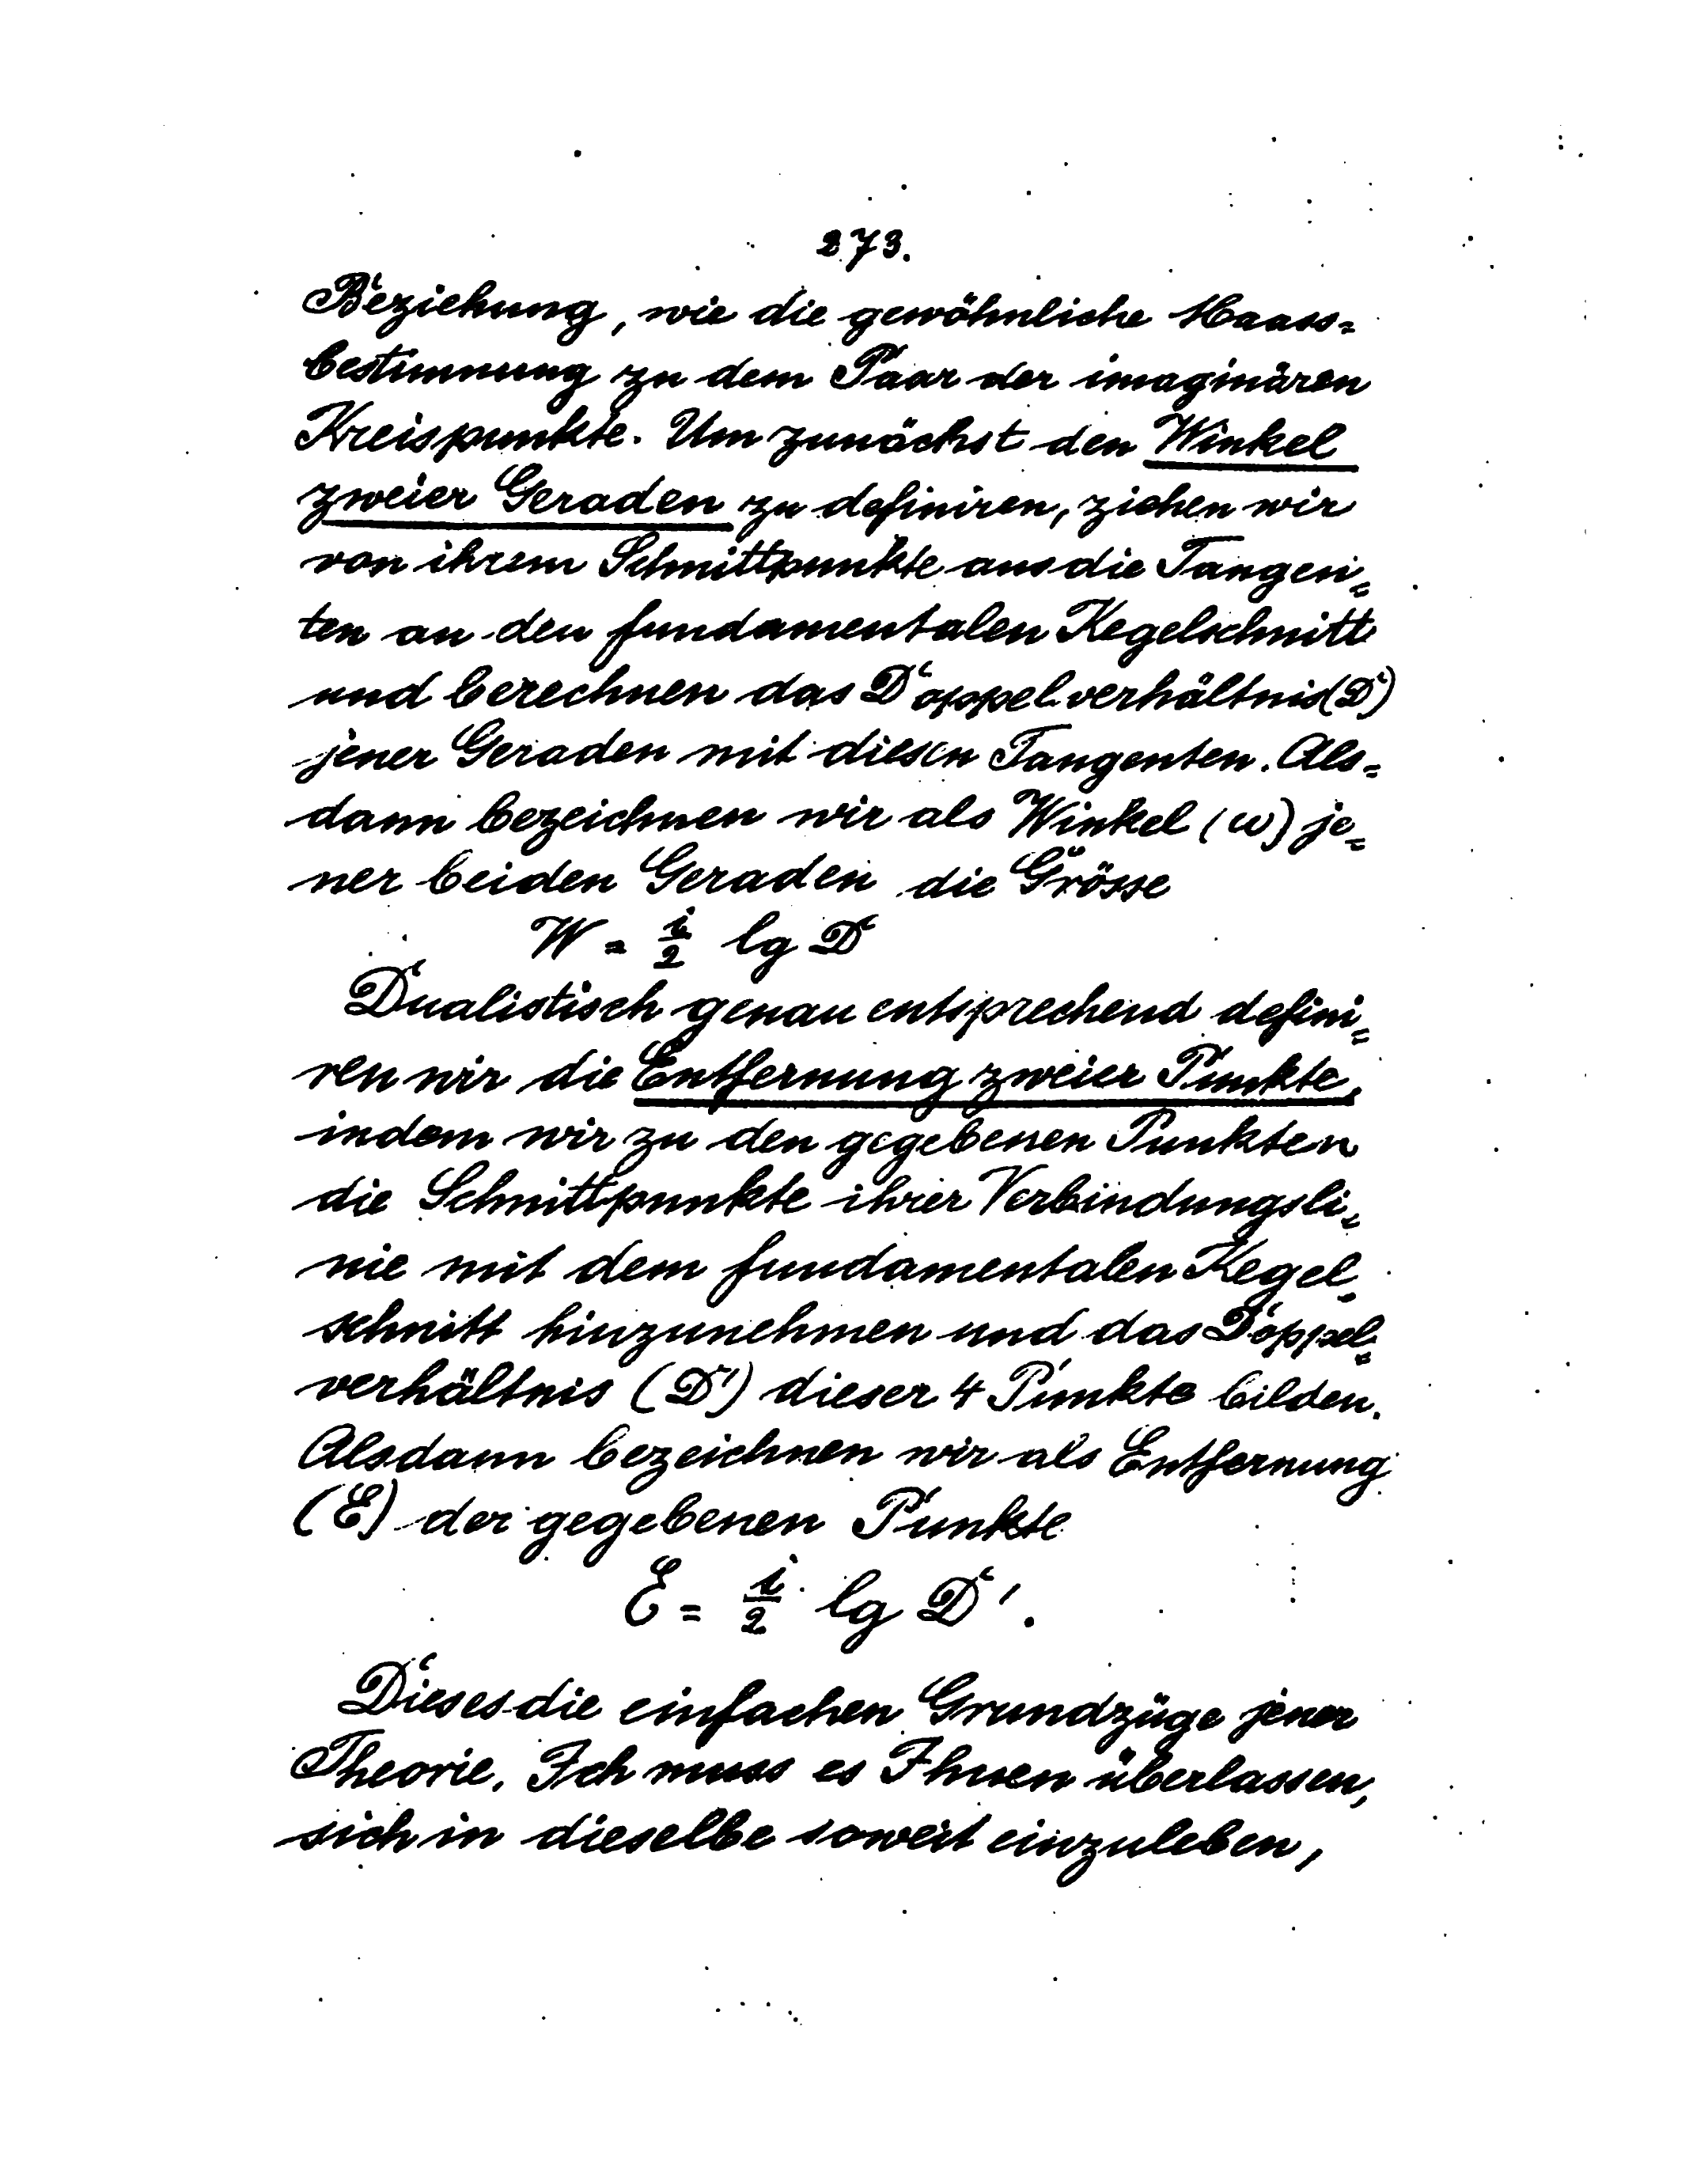 273.
Beziehung, wie die gewöhnliche Maass=
bestimmung zu dem Paar der imaginären
Kreispunkte. Um zunächst den Winkel
zweier Geraden zu definiren, ziehen wir
von ihrem Schnittpunkte aus die Tangen=
ten an den fundamentalen Kegelschnitt
und berechnen das Doppelverhältnis (D)
jener Geraden mit diesen Tangenten. Als=
dann bezeichnen wir als Winkel (ω) je=
ner beiden Geraden die Grösse
W = i/2 lg D
Dualistisch genau entsprechend defini=
ren wir die Entfernung zweier Punkte,
indem wir zu den gegebenen Punkten
die Schnittpunkte ihrer Verbindungsli=
nie mit dem fundamentalen Kegel=
schnitt hinzunehmen und das Doppel=
verhältnis (D') dieser 4 Punkte bilden.
Alsdann bezeichnen wir als Entfernung
(E) der gegebenen Punkte
E = i/2 lg D'.
Dieses die einfachen Grundzüge jener
Theorie. Ich muss es Ihnen überlassen,
sich in dieselbe soweit einzuleben,